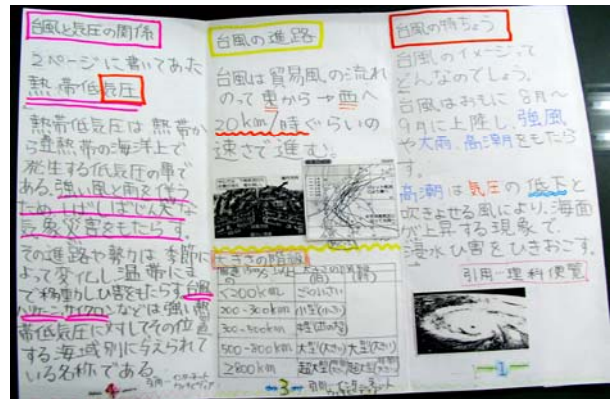 台風と気圧の関係
2ページに書いてあった
熱帯低気圧
熱帯低気圧は熱帯か
ら亜熱帯の海洋上で
発生する低気圧の事で
ある。強い風と雨を伴う
ためしばしばじん大な
気象災害をもたらす。
その進路や勢力は季節に
よって変化し温帯にま
で移動しひ害をもたらす。台風
ハリケーン・サイクロンなどは強い熱
帯低気圧に対してその位置
する海域別に与えられて
いる名称である。
4
引用―インターネット
ウィキペディア
台風の進路
台風は貿易風の流れ
のって東から→西へ
20km/時ぐらいの
速さで進む。
大きさの階級
<200km ごく小さい
200-300km 小型(小さい)
300-500km
500-800km 大型(大きい) 大型(大きい)
≧800km 超大型 超大型
3
引用―インターネット
台風の特ちょう
台風のイメージって
どんなのでしょう。
台風はおもに8月〜
9月に上陸し、強風
や大雨、高潮をもたら
す。
高潮は気圧の低下と
吹きよせる風により、海面
が上昇する現象で、
浸水ひ害をひきおこす。
引用―理科便覧
1